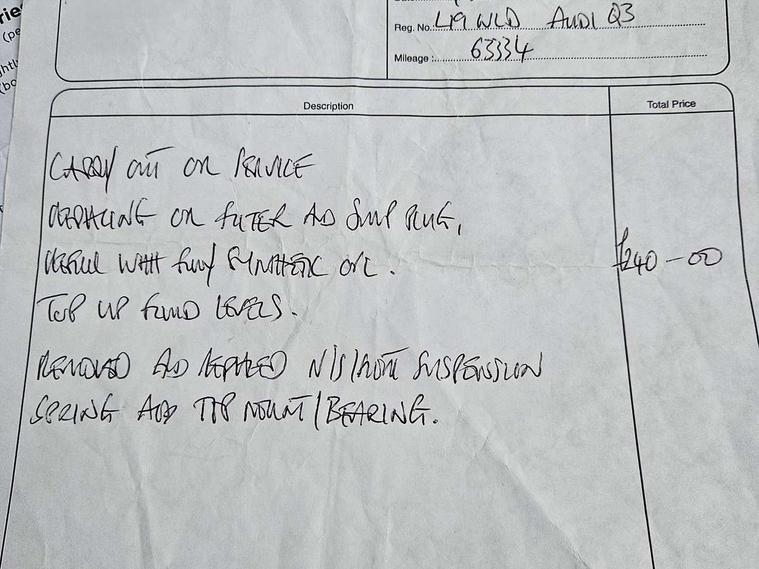 Reg. No. L19 WLD AUDI Q3
Mileage : 63334
Description
Total Price
CARRY OUT OIL SERVICE
REPLACING OIL FILTER AD SUMP PLUG,
REFILL WITH FULLY SYNTHETIC OIL.
£240-00
TOP UP FLUID LEVELS.
REMOVED AD REPLACED N/S/FRONT SUSPENSION
SPRING AND TOP MOUNT/BEARING.